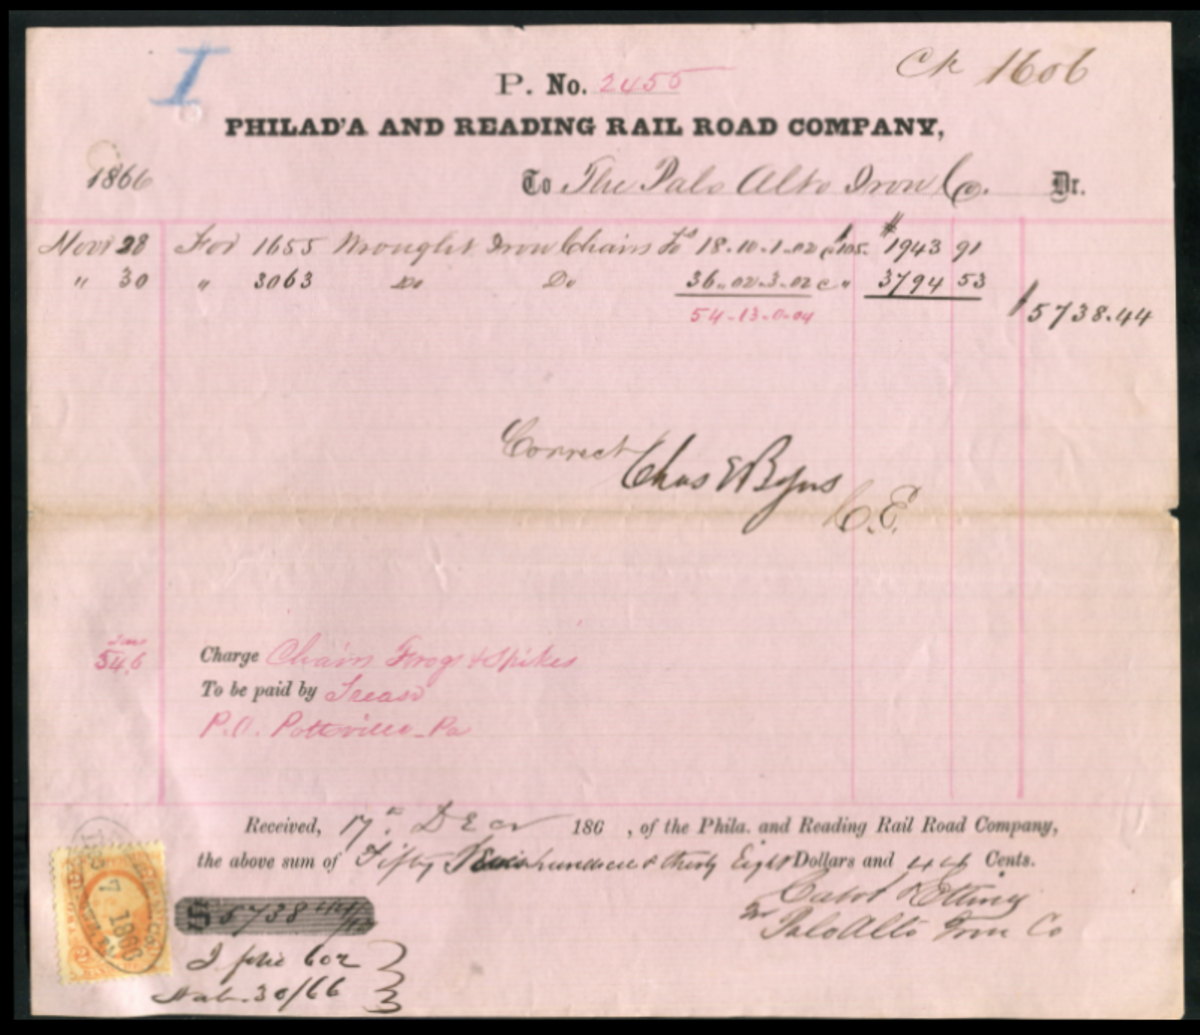 I
Ck 1606
P. No. 2455
PHILAD'A AND READING RAIL ROAD COMPANY,
1866 To The Palo Alto Iron Co. Dr.
Novr 28 For 1655 Wrought Iron Chairs 18.10.1.02 @ $105. $1943 91
" 30 " 3063 Do Do 36.02.3.02 @ " 3794 53
54.13.0.04 $5738.44
Correct Chas E Byers
C.E.
546
Charge Chairs Frogs & Spikes
To be paid by Treasr
P.O. Pottsville Pa
Received, 17th Decr 186 , of the Phila. and Reading Rail Road Company,
the above sum of Fifty Seven hundred & thirty Eight Dollars and 44 Cents.
$5738 44/100
Cabot Etting
Palo Alto Iron Co
602
30/66